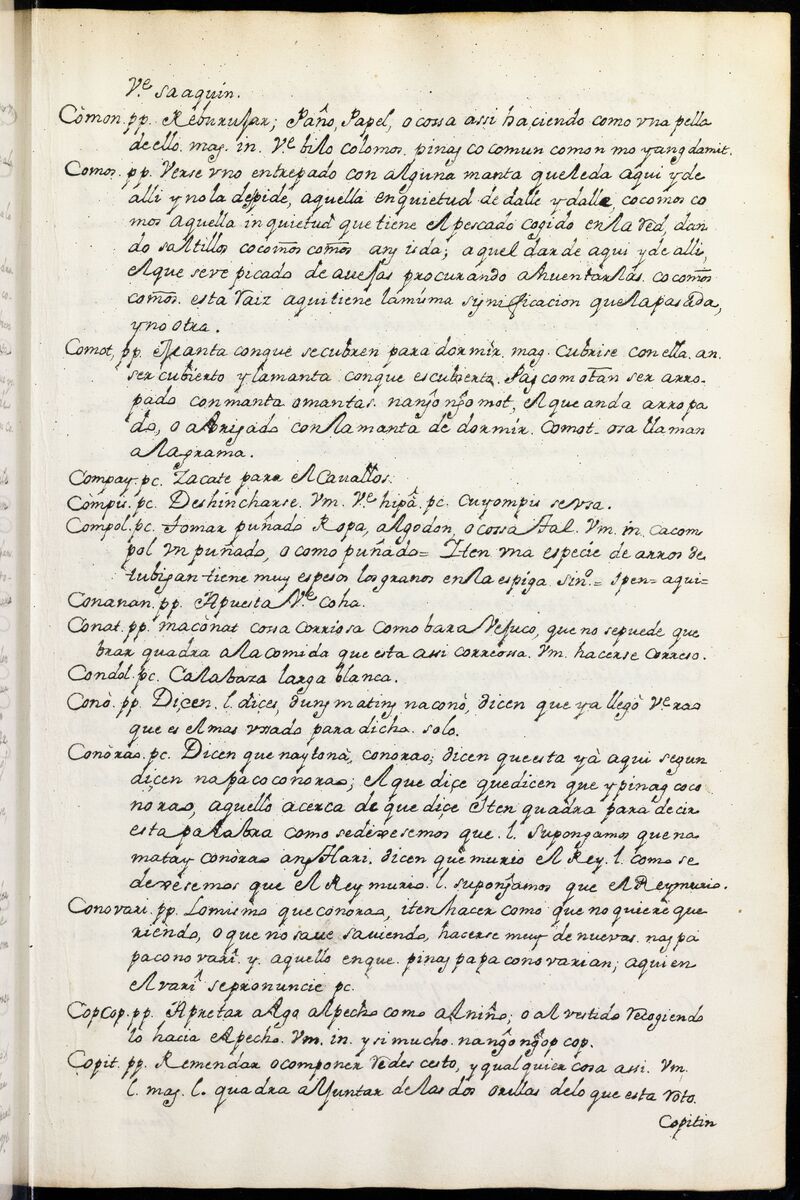 V.e saaquin.
Còmon. pp. Reburujar; Paño, Papel, o cossa assi haçiendo como vna pella
de ello. mag. in. V.e bilo colomos. pinag co comun comon mo yang damit.
Comos. pp. Verse vno entrepado con alguna manta que leda aqui y de
alli y no la despide, aquella enquietud de dalle y dalle, cocomos co
mos aquella inquietud que tiene el pescado cogido en la red, dan
do saltillos cocom̃os com̃os ang isda; aquel dar de aqui y de alli,
el que se ve picado de auejas procurando ahuentarlas. cocom̃os
com̃os. esta raiz aqui tiene la misma significacion que la pasada,
y no otra.
Comot, pp. Manta conque se cubren para dormir. mag. Cubrise con ella. an.
ser cubierto y la manta conque es cubierta. Pag comotan ser arro-
pado con manta o mantas. nango ngomot, el que anda arropa
do, o abrigado con la manta de dormir. Comot-osa llaman
a la grama.
Compay. pc. Zacate para el Cauallos.
Còmpis. pc. Deshincharse. Vm. V.e hipâ. pc. cuyompis se vsa.
Compol. pc. tomar puñado Ropa, algodon, o cossa tal. Vm. in. cacom
pol vn puñado, o como puñado= Iten vna especie de arros de
tubigan tiene muy espesos los granos en la espiga sin.º= ipen= aqui=
Conanan. pp. Apuesta V.e coha.
Conat. pp. macònat cossa corriosa como bara Vejuco, que no sepuede que
brar quadra a la comida que esta assi correossa. Vm. hacerse correoso.
Condol. pc. Calabaza larga blanca.
Conò. pp. Diçen. l. diçes, dungmating na conò, dicen que ya llegò V.e rao
que es el mas vssado para dicho. solo.
Conòrao. pc. Dicen que naytonà, conorao; dicen que esta yà aqui segun
diçen napacoconorao; el que diçe que dicen que ypinag coco
norao, aquello acerca de que diçe Iten quadra para decir
esta palabra como sedixesemos que. l. supongamos que na
matay conòrao ang Hari. dicen que murio el Rey. l. como se
dexèsemos que el Rey murio. l. suponjamos que el Rey murio.
Conovari. pp. Lo mismo que conorao, iten hacer como que no quiere que
riendo, o que no saue saviendo, hacerse muy de nuevas. nag pa
paconovarî. y. aquello en que. pinag papaconovarian; aqui en
el varî se pronuncie pc.
Copcop. pp. Apretar algo al pecho como al niño; o al vestido recogiendo
lo hacia el pecho. Vm. in. y si mucho. nangongopcop.
Copit. pp. Remendar o componer redes cesto, y qualquier cosa assi. Vm.
l. mag. l. quadra a juntar de las dos orillas delo que esta roto.
Copitin